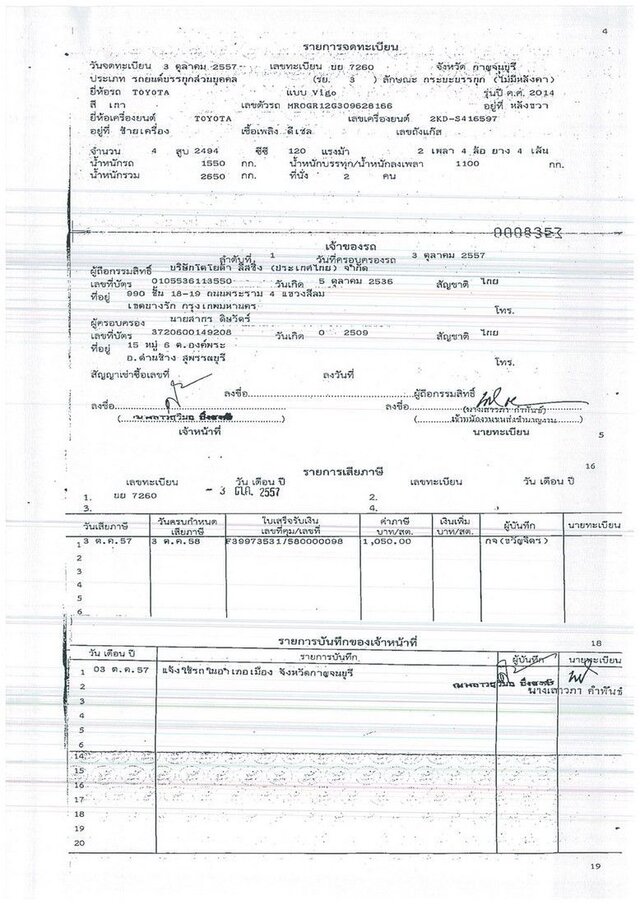 4
รายการจดทะเบียน
วันจดทะเบียน 3 ตุลาคม 2557 เลขทะเบียน ยย 7260 จังหวัด กาญจนบุรี
ประเภท รถยนต์บรรทุกส่วนบุคคล (รย. 3 ) ลักษณะ กระบะบรรทุก (ไม่มีหลังคา)
ยี่ห้อรถ TOYOTA แบบ Vigo รุ่นปี ค.ศ. 2014
สี เทา เลขตัวรถ MROGR12G309628166 อยู่ที่ หลังขวา
ยี่ห้อเครื่องยนต์ TOYOTA เลขเครื่องยนต์ 2KD-S416597
อยู่ที่ ซ้ายเครื่อง เชื้อเพลิง ดีเซล เลขถังแก๊ส
จำนวน 4 สูบ 2494 ซีซี 120 แรงม้า 2 เพลา 4 ล้อ ยาง 4 เส้น
น้ำหนักรถ 1550 กก. น้ำหนักบรรทุก/น้ำหนักลงเพลา 1100 กก.
น้ำหนักรวม 2650 กก. ที่นั่ง 2 คน
0008353
เจ้าของรถ
ลำดับที่ 1 วันที่ครอบครองรถ 3 ตุลาคม 2557
ผู้ถือกรรมสิทธิ์ บริษัทโตโยต้า ลีสซิ่ง (ประเทศไทย) จำกัด
เลขที่บัตร 0105536113550 วันเกิด 5 ตุลาคม 2536 สัญชาติ ไทย
ที่อยู่ 990 ชั้น 18-19 ถนนพระราม 4 แขวงสีลม
เขตบางรัก กรุงเทพมหานคร โทร.
ผู้ครอบครอง นายสากร ดิษวัตร์
เลขที่บัตร 3720600149208 วันเกิด 0 2509 สัญชาติ ไทย
ที่อยู่ 15 หมู่ 6 ต.องค์พระ
อ.ด่านช้าง สุพรรณบุรี โทร.
สัญญาเช่าซื้อเลขที่ ลงวันที่
ลงชื่อ ผู้ถือกรรมสิทธิ์
ลงชื่อ ลงชื่อ (นางเสาวภา คำพันธ์)
เจ้าพนักงานขนส่งชำนาญงาน
เจ้าหน้าที่ นายทะเบียน
5
รายการเสียภาษี 16
เลขทะเบียน วัน เดือน ปี เลขทะเบียน วัน เดือน ปี
1. ยย 7260 - 3 ต.ค. 2557 2.
3. 4.
วันเสียภาษี วันครบกำหนดเสียภาษี ใบเสร็จรับเงิน เลขที่คุม/เลขที่ ค่าภาษี บาท/สต. เงินเพิ่ม บาท/สต. ผู้บันทึก นายทะเบียน
1 3 ต.ค.57 3 ต.ค.58 F39973531/580000098 1,050.00 กจ(ขวัญจิตร)
2
3
4
5
6
รายการบันทึกของเจ้าหน้าที่ 18
วัน เดือน ปี รายการบันทึก ผู้บันทึก นายทะเบียน
1 03 ต.ค.57 แจ้งใช้รถในอำเภอเมือง จังหวัดกาญจนบุรี
2 นางเสาวภา คำพันธ์
3
4
5
6
14
15
16
17
18
19
20
19